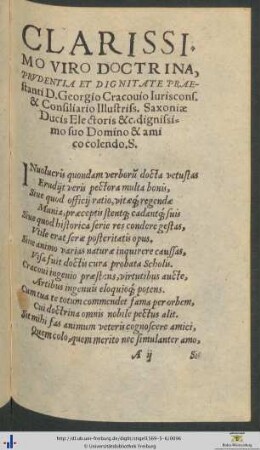 CLARISSI-
MO VIRO DOCTRINA,
PRVDENTIA ET DIGNITATE PRAE-
stanti D. Georgio Cracouio Iurisconf.
& Consiliario Illustriss. Saxoniæ
Ducis Electoris &c. dignissi-
mo suo Domino & ami
co colendo, S.
INuolucris quondam verborũ docta vetustas
Erudijt veris pectora multa bonis,
Siue quod officij ratio, vitæq́; regendæ
Mania, præceptis stentq́; cadantq́; suis
Siue quod historica serie res condere gestas,
Vtile erat seræ posteritatis opus,
Siue animo varias naturæ inquirere caussas,
Visa fuit doctis cura probata Scholis.
Cracoui ingenio præstens, virtutibus aucte,
Artibus ingenuis eloquioq́; potens.
Cum tua te totum commendet fama per orbem,
Cui doctrina omnis nobile pectus alit.
Sit mihi fas animum veteris cognoscere amici,
Quem colo, quem merito nec simulanter amo,
A ij
Si
http://dl.ub.uni-freiburg.de/diglit/stigel1569-3-4/0006
© Universitätsbibliothek Freiburg